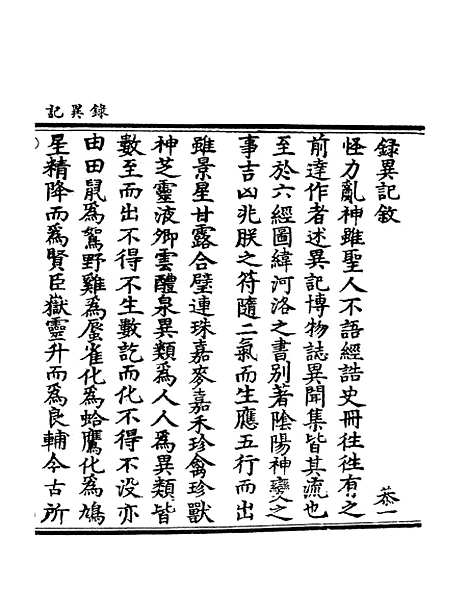 錄異記
錄異記敘 恭一
怪力亂神雖聖人不語經誥史冊往往有之
前達作者述異記博物誌異聞集皆其流也
至於六經圖緯河洛之書別著陰陽神變之
事吉凶兆朕之符隨二氣而生應五行而出
雖景星甘露合璧連珠嘉麥嘉禾珍禽珍獸
神芝靈液卿雲醴泉異類為人人為異類皆
數至而出不得不生數訖而化不得不沒亦
由田鼠為駕野雞為蜃雀化為蛤鷹化為鳩
星精降而為賢臣嶽靈升而為良輔今古所